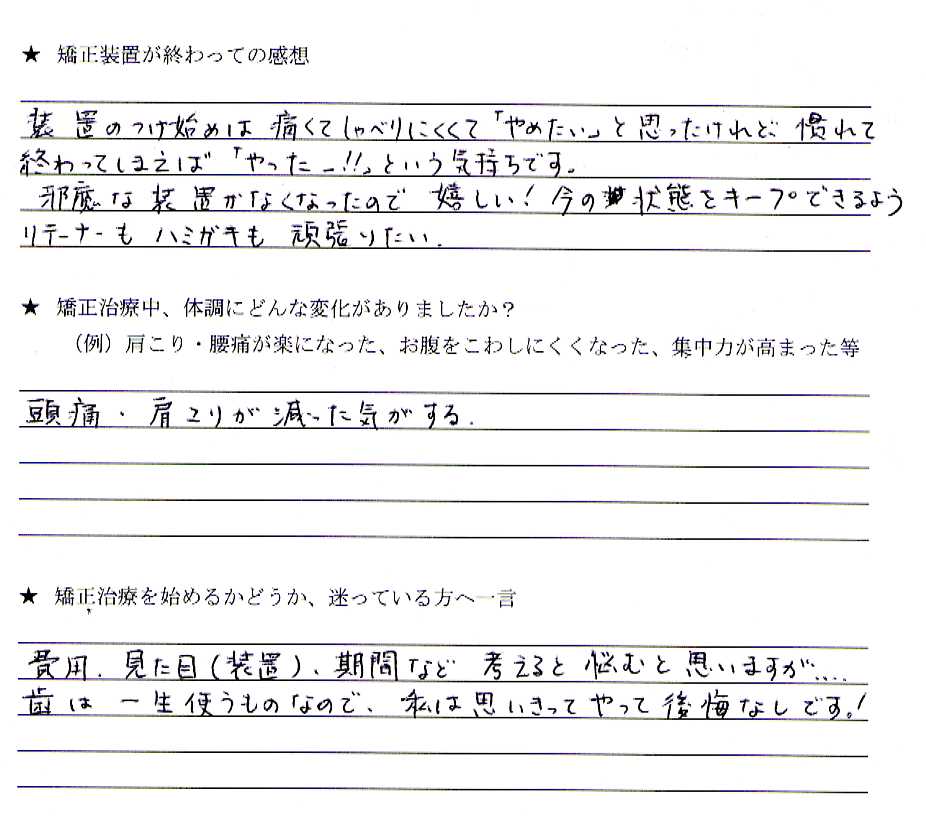 ★ 矯正装置が終わっての感想
装置のつけ始めは痛くてしゃべりにくくて「やめたい」と思ったけれど、慣れて
終わってしまえば「やったー!!」という気持ちです。
邪魔な装置がなくなったので嬉しい！今の状態をキープできるよう
リテーナーもハミガキも頑張りたい.
★ 矯正治療中、体調にどんな変化がありましたか？
（例）肩こり・腰痛が楽になった、お腹をこわしにくくなった、集中力が高まった等
頭痛・肩コリが減った気がする.
★ 矯正治療を始めるかどうか、迷っている方へ一言
費用、見た目(装置)、期間など考えると悩むと思いますが....
歯は一生使うものなので、私は思いきってやって後悔なしです！